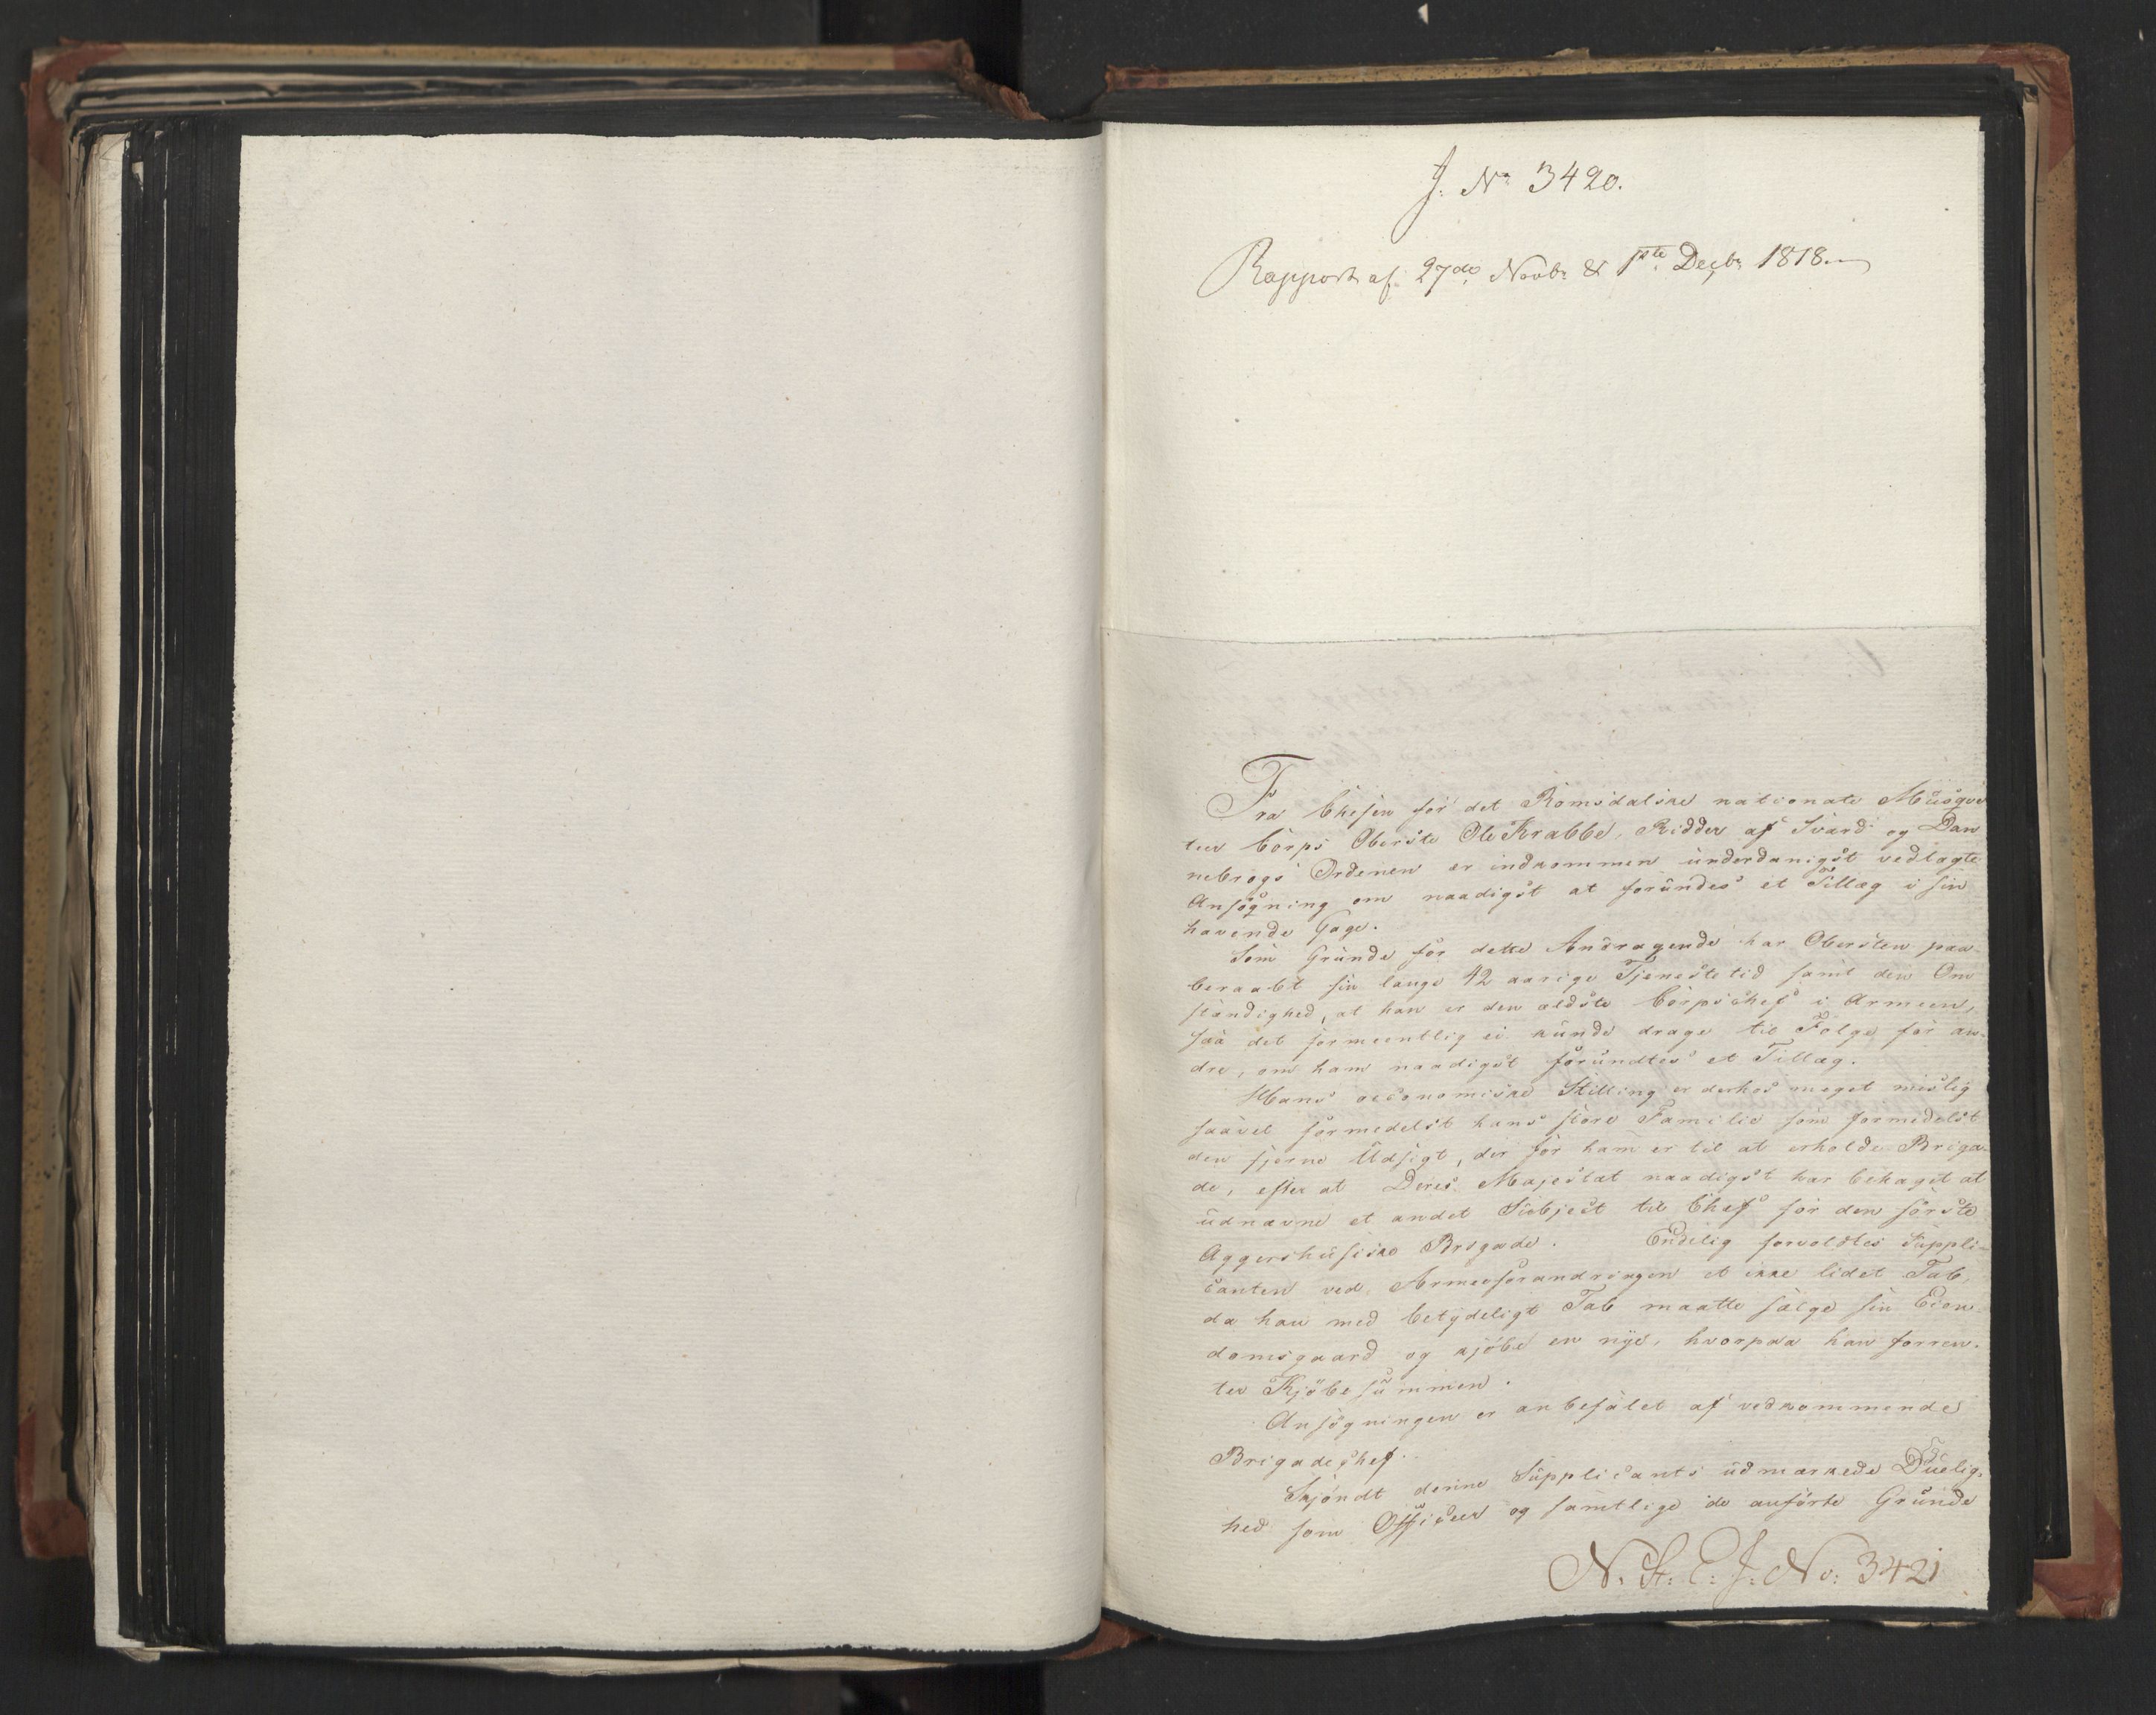 J: No 3420.
Rapport af 27de Novbr & 1ste Decbr 1818.
Fra Chefen for det Romsdalske nationale Musqve
teer Corps Oberste Ole Krabbe, Ridder af Sværd og Dan
nebrogs Ordenen er indkommen underdanigst vedlagte
Ansøgning om naadigst at forundes et Tillæg i sin
havende Gage.
Som Grunde for dette Andragende har Obersten paa-
beraabt sin lange 42 aarige Tjenestetid samt den Om
stændighed, at han er den ældste Corpschef i Armeen,
saa det formeentlig ei kunde drage til Følge for an-
dre, om ham naadigst forundtes et Tillæg.
Hans oeconomiske Stilling er derhos meget mislig
saavel formedelst hans store Familie som formedelst
den fjerne Udsigt, der for ham er til at erholde Briga-
de, efter at Deres Majestæt naadigst har behaget at
udnævne et andet Subject til Chef for den første
Aggershusiske Brigade. Endelig forvoldtes Suppli-
canten ved Armeeforandringen et ikke lidet Tab,
da han med betydeligt Tab maatte sælge sin Eien-
domsgaard og kjøbe en nye, hvorpaa han forren-
ter Kjøbesummen.
Ansøgningen er anbefalet af vedkommende
Brigadechef.
Skjøndt denne Supplicants udmærkede Duelig-
hed som Officeer og samtlige de anførte Grunde
N. St. C: J: No: 3421